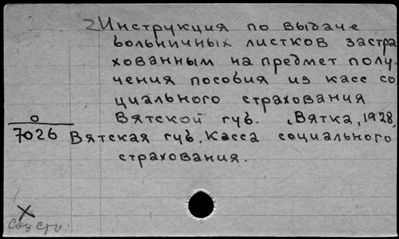 2) Инструкция по выдаче
больничных листков застра
хованным на предмет полу-
чения пособия из касс со
циального страхования
Вятской губ. Вятка, 1928,
0
7026 Вятская губ. Касса социального
страхования.
X
Соц Стр.